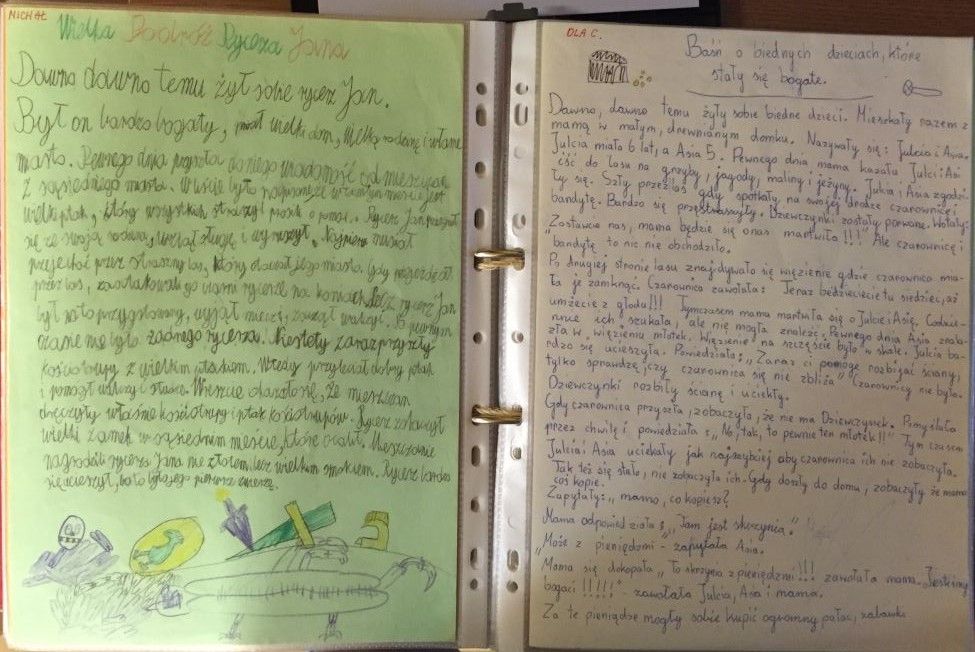 MICHAŁ
Wielka Podróż Rycerza Jana
Dawno dawno temu żył sobie rycerz Jan.
Był on bardzo bogaty, miał wielki dom, wielką rodzinę i własne
miasto. Pewnego dnia przyszła do niego wiadomość od mieszkańców
z sąsiedniego miasta. W liście było napisane że w tamtym mieście jest
wielki ptak, który wszystkich straszy i prosili o pomoc. Rycerz Jan pożegnał
się ze swoją rodziną, wziął sługę i wyruszył. Najpierw musiał
przejechać przez straszny las, który otaczał jego miasto. Gdy przejeżdżał
przez las, zaatakowali go czarni rycerze na koniach. Lecz rycerz Jan
był na to przygotowany, wyjął miecz i zaczął walczyć. Po pewnym
czasie nie było żadnego rycerza. Niestety zaraz przyszły
kościotrupy z wielkim ptakiem. Wtedy przyleciał dobry ptak
i pomógł walczyć i starce. Wreszcie okazało się, że mieszkan
dręczyły właśnie kościotrupy i ptak kościotrupów. Rycerz zobaczył
wielki zamek w sąsiednim mieście, które ocalił. Mieszczanie
nagrodzili rycerza Jana nie złotem, lecz wielkim smokiem. Rycerz bardzo
się ucieszył, bo to było jego pierwsze zwierzę.
OLA C.
Baśń o biednych dzieciach, które
stały się bogate.
Dawno, dawno temu żyły sobie biedne dzieci. Mieszkały razem z
mamą w małym, drewnianym domku. Nazywały się: Julcia i Asia.
Julcia miała 6 lat, a Asia 5. Pewnego dnia mama kazała Julci i Asi
iść do lasu na grzyby, jagody, maliny i jeżyny. Julcia i Asia zgodzi-
ły się. Szły przez las gdy spotkały, na swojej drodze czarownicę i
bandytę. Bardzo się przestraszyły. Dziewczynki zostały porwane. Wołały:
Zostawcie nas, mama będzie się o nas martwiła !!!" Ale czarownicę i
bandytę to nic nie obchodziło.
Po drugiej stronie lasu znajdywało się więzienie gdzie czarownica mia-
ła je zamknąć. Czarownica zawołała: Teraz będziecie tu siedzieć, aż
umrzecie z głodu!!! Tymczasem mama martwiła się o Julcię i Asię. Codzien-
nie ich szukała, ale nie mogła znaleźć. Pewnego dnia Asia znala-
zła w więzieniu młotek. Więzienie na szczęście było w skale. Julcia ba-
rdzo się ucieszyła. Powiedziała: „Zaraz ci pomogę rozbijać ściany,
tylko sprawdzę czy czarownica się nie zbliża" Czarownicy nie było.
Dziewczynki rozbiły ścianę i uciekły.
Gdy czarownica przyszła, zobaczyła, że nie ma Dziewczynek. Pomyślała
przez chwilę i powiedziała: „No, tak, to pewnie ten młotek!!" Tym czasem
Julcia i Asia uciekały jak najszybciej aby czarownica ich nie zobaczyła.
Tak też się stało, nie zobaczyła ich. Gdy doszły do domu, zobaczyły że mama
coś kopie.
Zapytały: „mamo, co kopiesz?
Mama odpowiedziała: „Tam jest skrzynia."
„Może z pieniędzmi - zapytała Asia.
Mama się dokopała „To skrzynia z pieniędzmi!!! zawołała mama. Jesteśmy
bogaci !!!!!" - zawołała Julcia, Asia i mama.
Za te pieniądze mogły sobie kupić ogromny pałac, zabawki